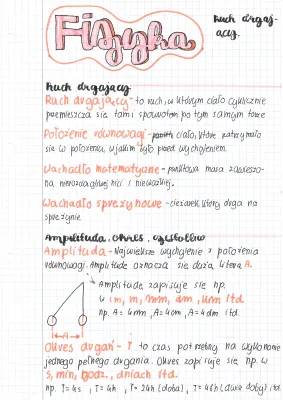 Fizyka
Ruch drgaj-
ący.
Ruch drgający
Ruch drgający - to ruch, w którym ciało cyklicznie
przemieszcza się tam i spowrotem po tym samym torze
Położenie równowagi - ciało, które zatrzymało
się w położeniu, w jakim było przed wychyleniem.
Wachadło matematyczne - punktowa masa zawieszo-
na nierozciągliwej nici i nieważkiej.
Wachadło sprężynowe - ciężarek, który drga na
sprężynie.
Amplituda. Okres. Częstotliw
Amplituda - Największe wychylenie z położenia
równowagi. Amplitudę oznacza się dużą literą A.
Amplitudę zapisuje się np.
w m, mm, dm, itd.
np. A = 4mm, A = 4cm, A = 4dm itd.
A
Okres drgań - T to czas potrzebny na wykonanie
jednego pełnego drgania. Okres zapisuje się np. w
s, min, godz., dniach itd.
np. T = 4s, T = 4h, T = 24h (doba), T = 48h (dwie doby) itd.